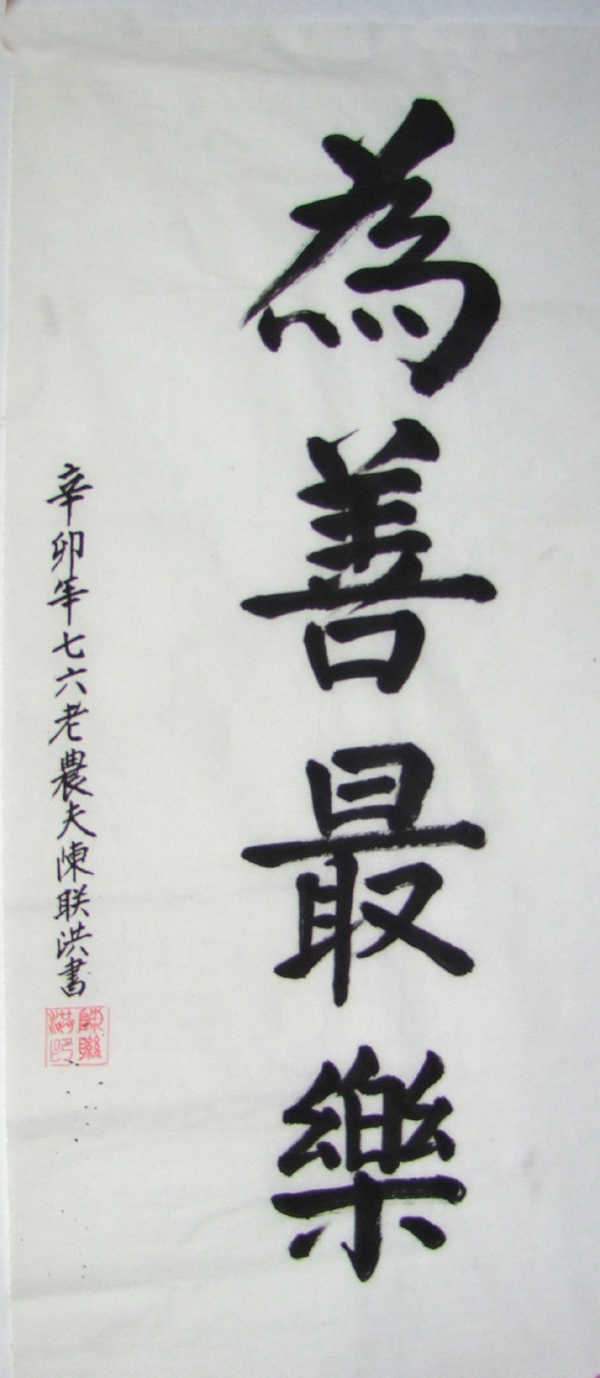 為善最樂
辛卯年七六老農夫陳联洪書
陳聯洪印